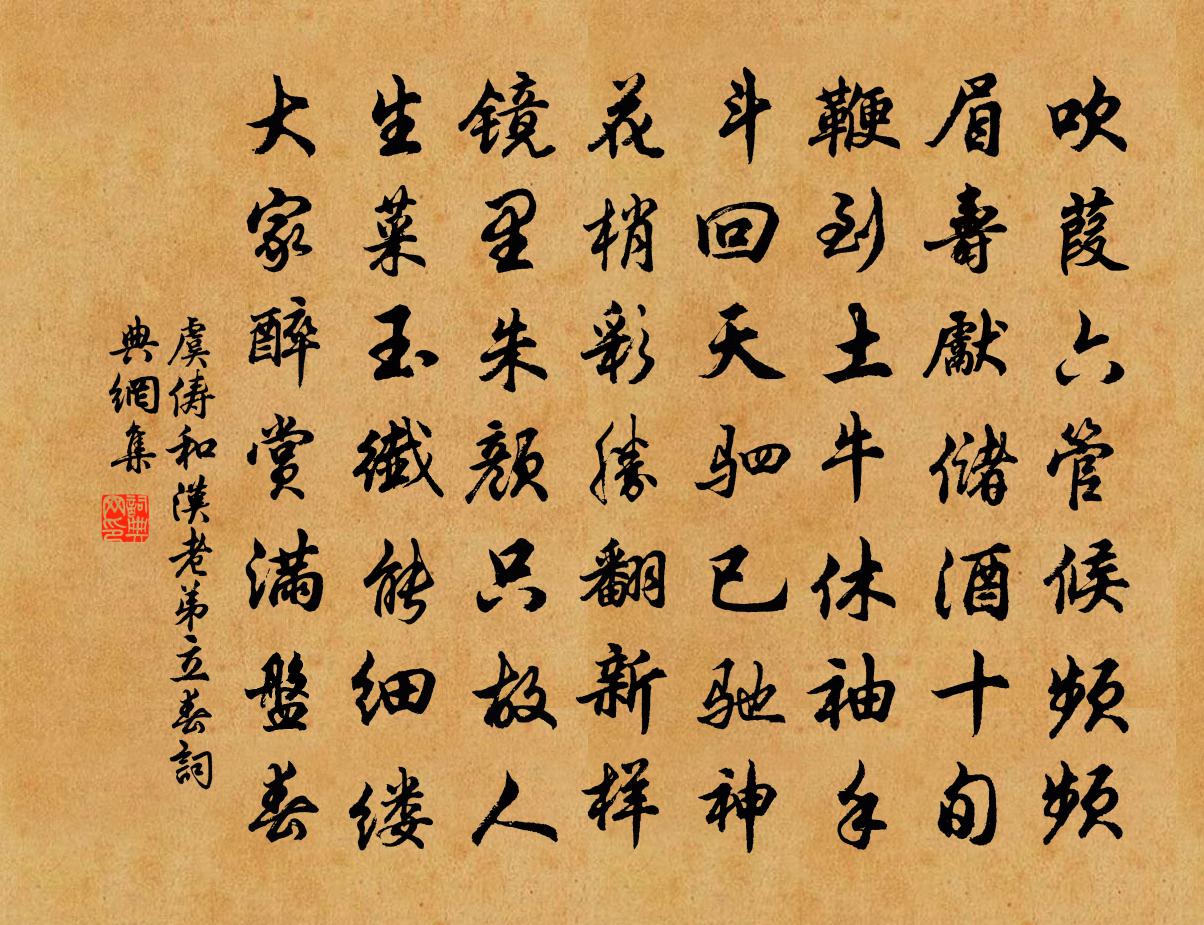 吹葭六管候频频
眉壽獻储酒十旬
鞭到土牛休袖手
斗回天驷已驰神
花梢彩勝翻新样
镜里朱颜只故人
生菜玉纖能细缕
大家醉賞满盤春
虞俦和漢老弟立春詞
典網集